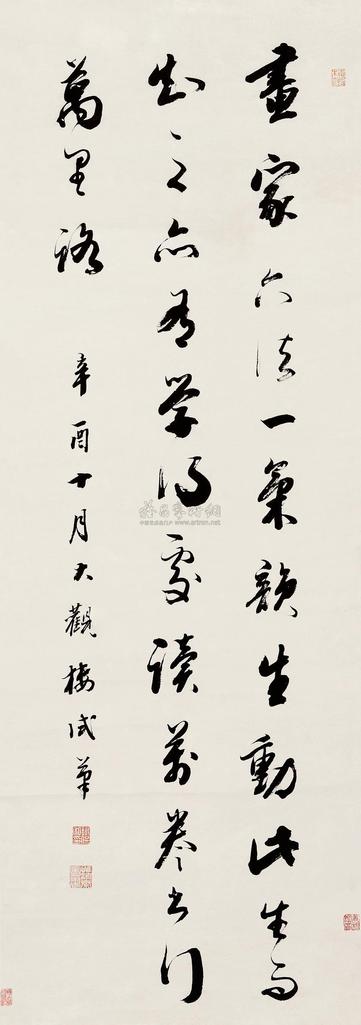 畫家六法一氣韻生動此生而
知之亦有學得處讀萬卷書行
萬里路
辛酉十月大觀樓試筆